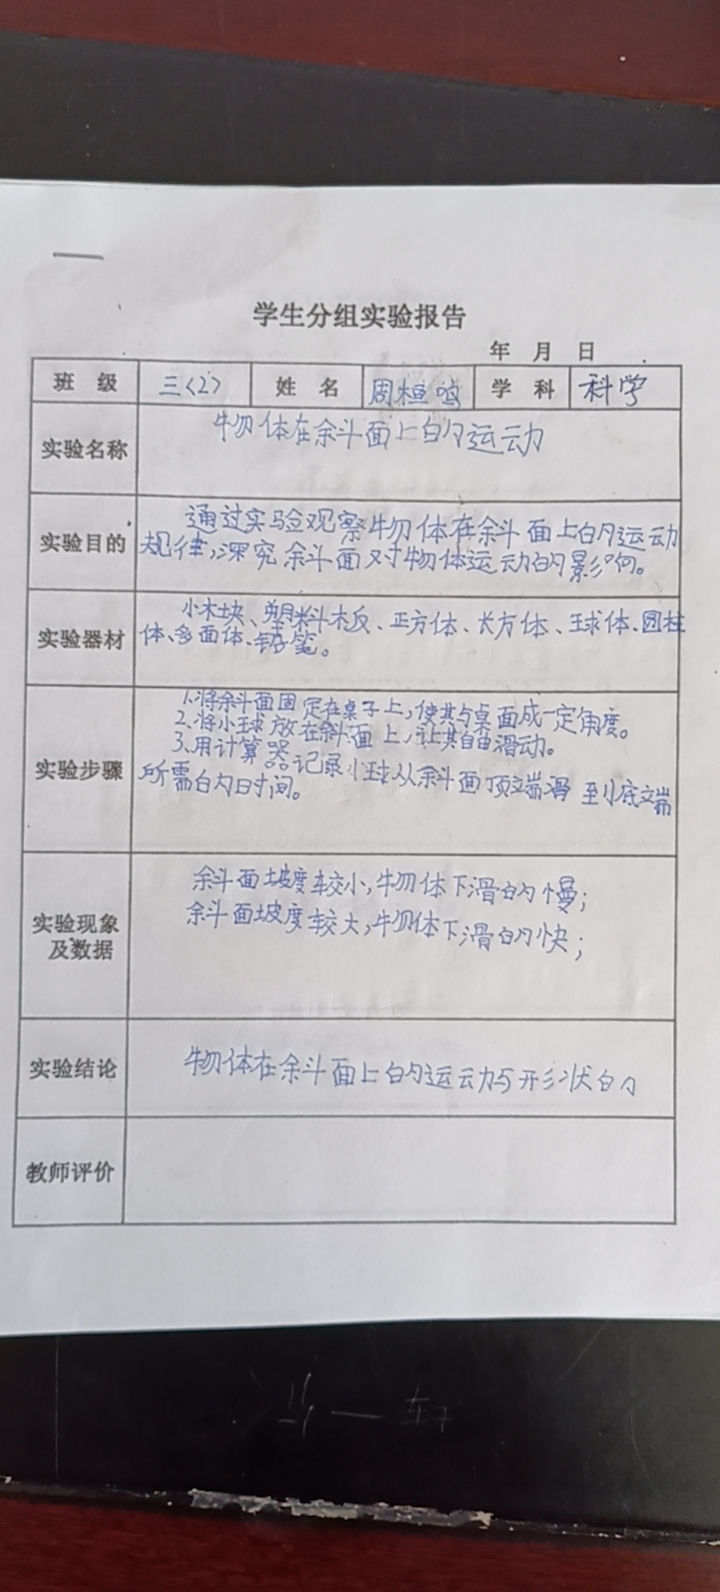 学生分组实验报告
年 月 日
班 级 三(2) 姓 名 周桓鸣 学 科 科学
实验名称 物体在斜面上的运动
实验目的 通过实验观察物体在斜面上的运动
规律,深究斜面对物体运动的影响。
实验器材 小木块、塑料板、正方体、长方体、球体、圆柱
体、多面体、铅笔。
实验步骤 1.将斜面固定在桌子上,使其与桌面成一定角度。
2.将小球放在斜面上,让其自由滑动。
3.用计算器记录小球从斜面顶端滑到底端
所需的时间。
实验现象
及数据
斜面坡度较小,物体下滑的慢;
斜面坡度较大,物体下滑的快;
实验结论 物体在斜面上的运动与形状的
教师评价